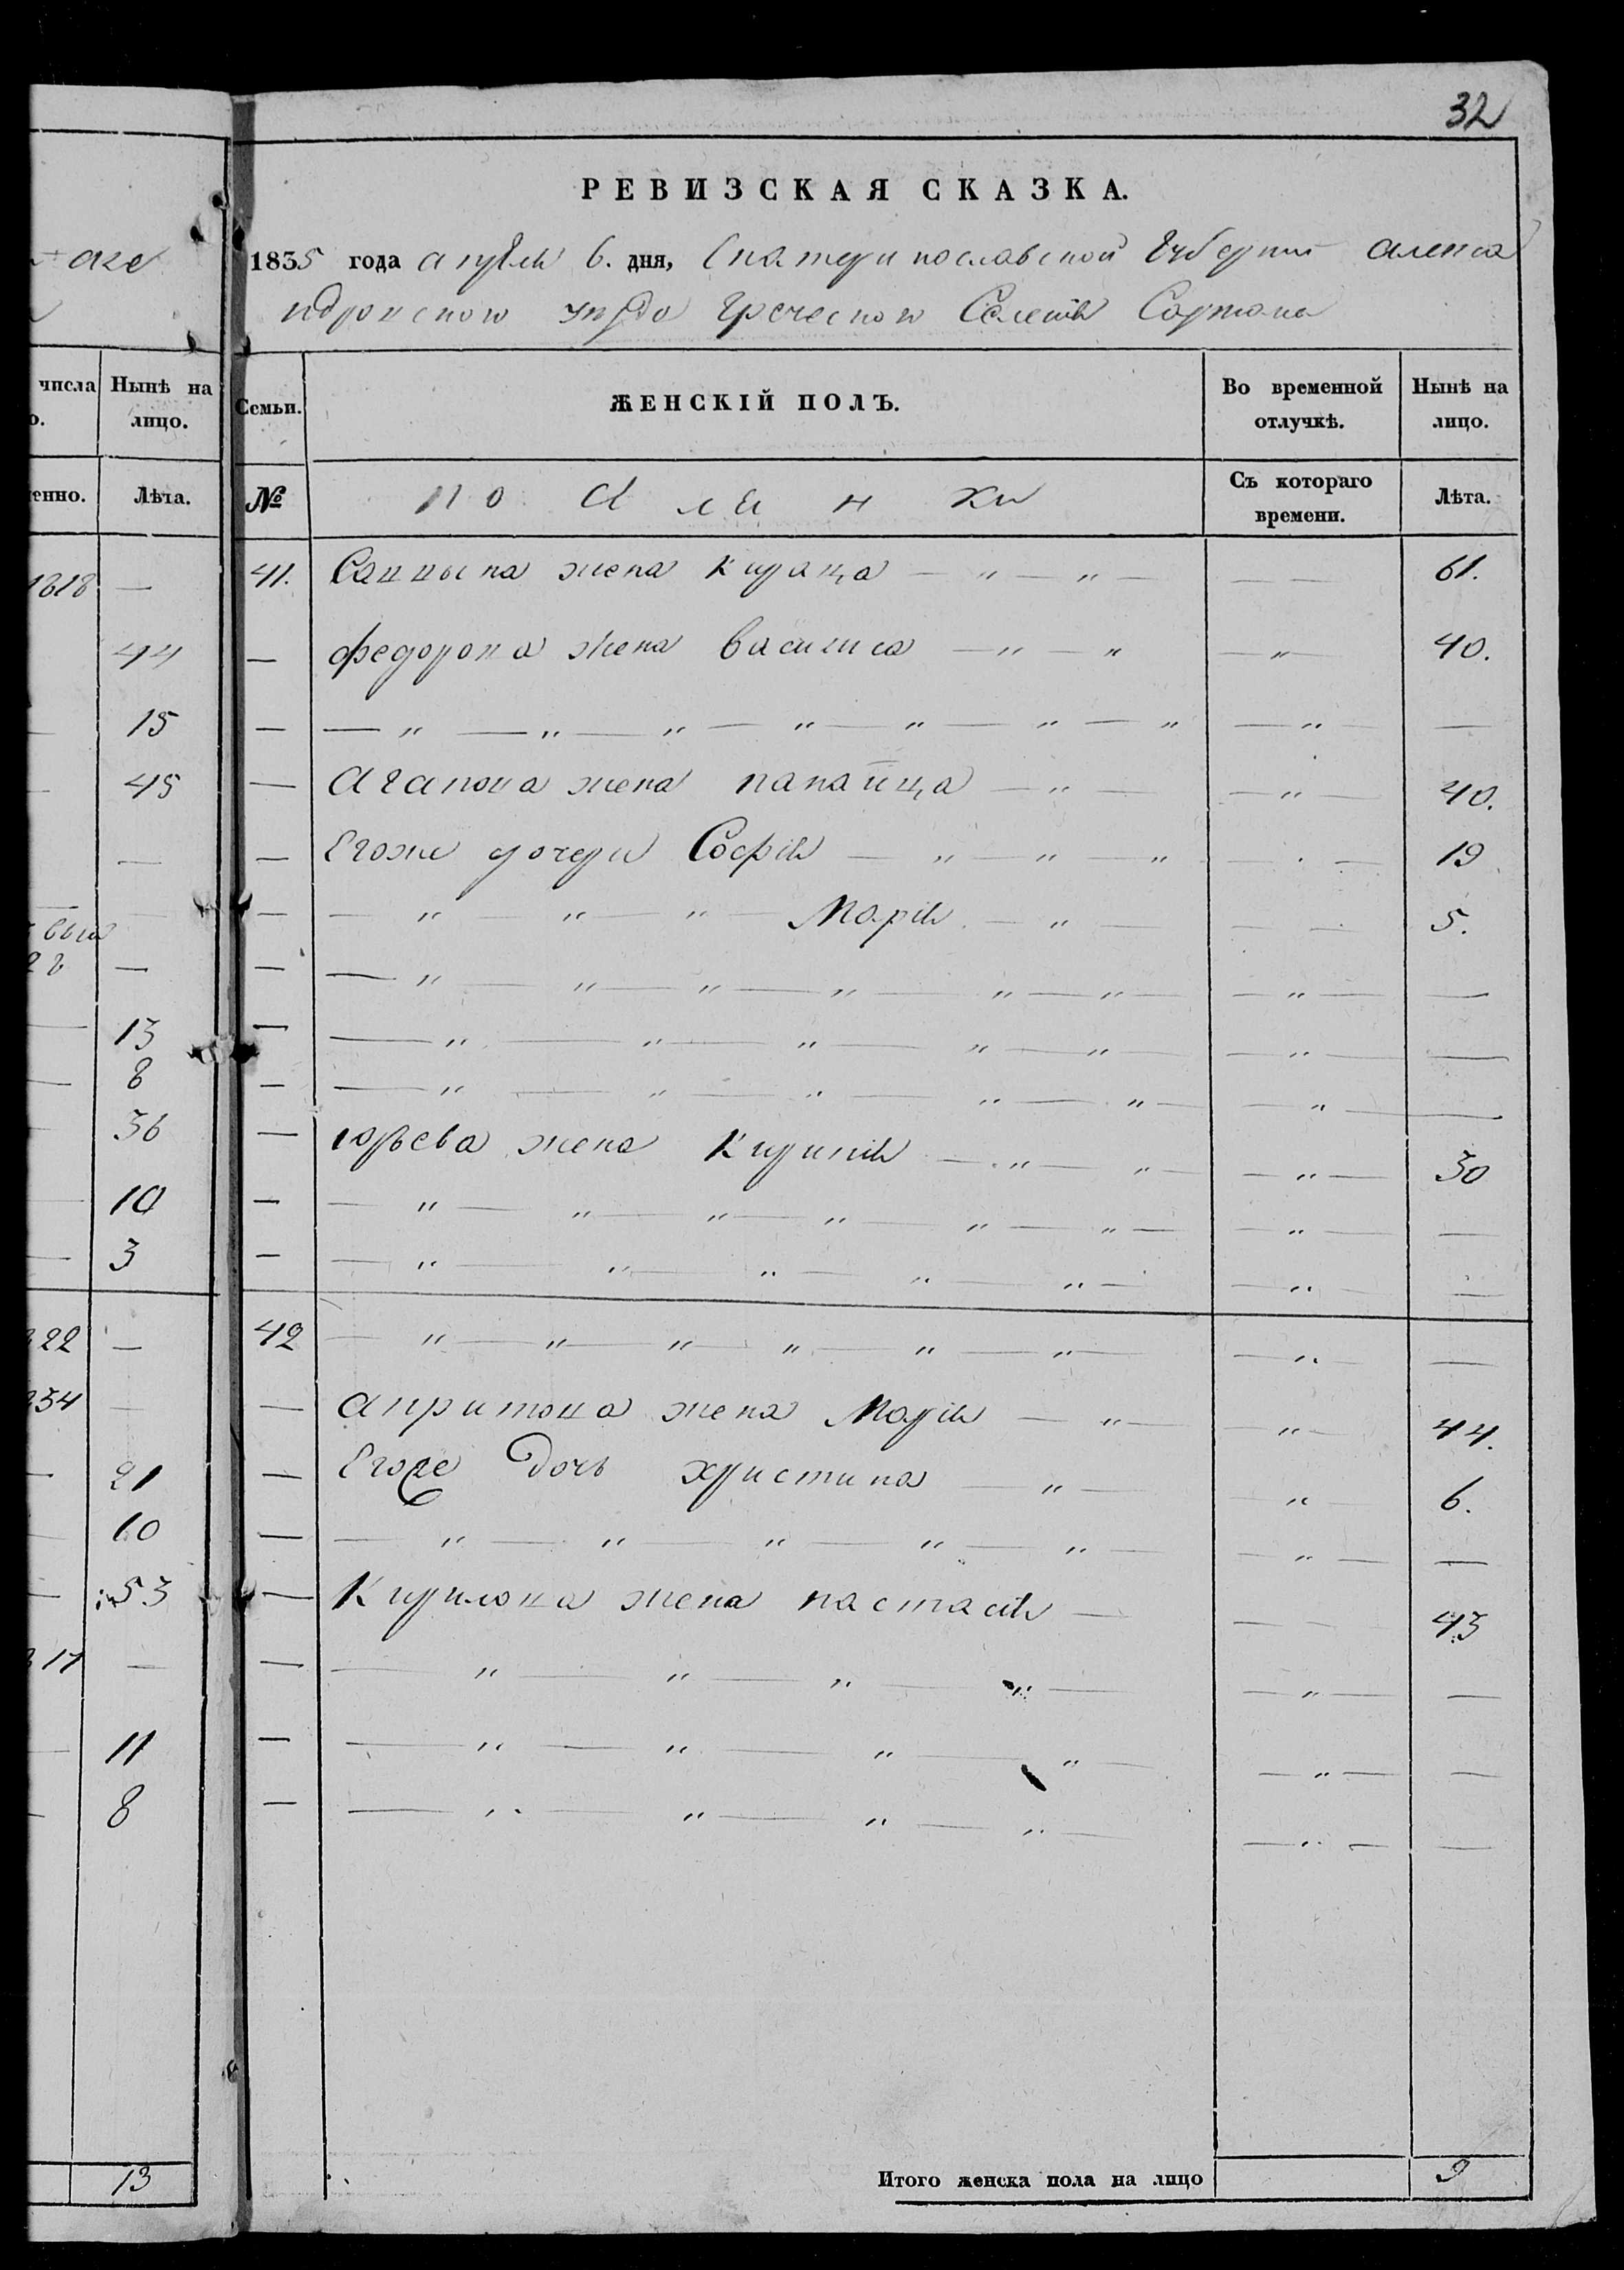 32
РЕВИЗСКАЯ СКАЗКА.
1835 года апреля 6. дня, Екатеринославской Губернии Алекса
ндровского уезда Греческого Селения Сартана
числа
Нынѣ на лицо.
Семьи.
ЖЕНСКІЙ ПОЛЪ.
Во временной отлучкѣ.
Нынѣ на лицо.
Лѣта.
№
Съ котораго времени.
Лѣта.
1818 —
41. жена Кираца — „ — „ — — — 61.
44
— Федорова жена Василиса — „ — „ — „ — 40.
15
— — „ — „ — „ — „ — „ — „ — „ — „ — —
45
— Агапова жена папаица — „ — — „ — 40.
—
— Егоже дочери Софія — „ — „ — „ — 19
— — „ — „ — „ — Марія — „ — — — 5.
—
— — „ — „ — „ — „ — „ — „ — — „ — —
13
— — „ — „ — „ — „ — „ — — „ — —
8
— — „ — „ — „ — „ — „ — — „ — —
36
— Юрьева жена — „ — „ — — „ — 30
10
— — „ — „ — „ — „ — „ — „ — — „ — —
3
— — „ — „ — „ — „ — „ — — „ — —
822 —
42 — „ — „ — „ — „ — „ — „ — — „ — —
834 —
— жена Марія — „ — — „ — 44.
21
— Егоже дочь христина — „ — — „ — 6.
10
— — „ — „ — „ — „ — „ — — „ — —
53
— Кирилова жена настасія — — — 43
817 —
— — „ — „ — „ — „ — — „ — —
11
— — „ — „ — „ — „ — — „ — —
8
— — „ — „ — „ — „ — — „ — —
13
Итого женска пола на лицо 9